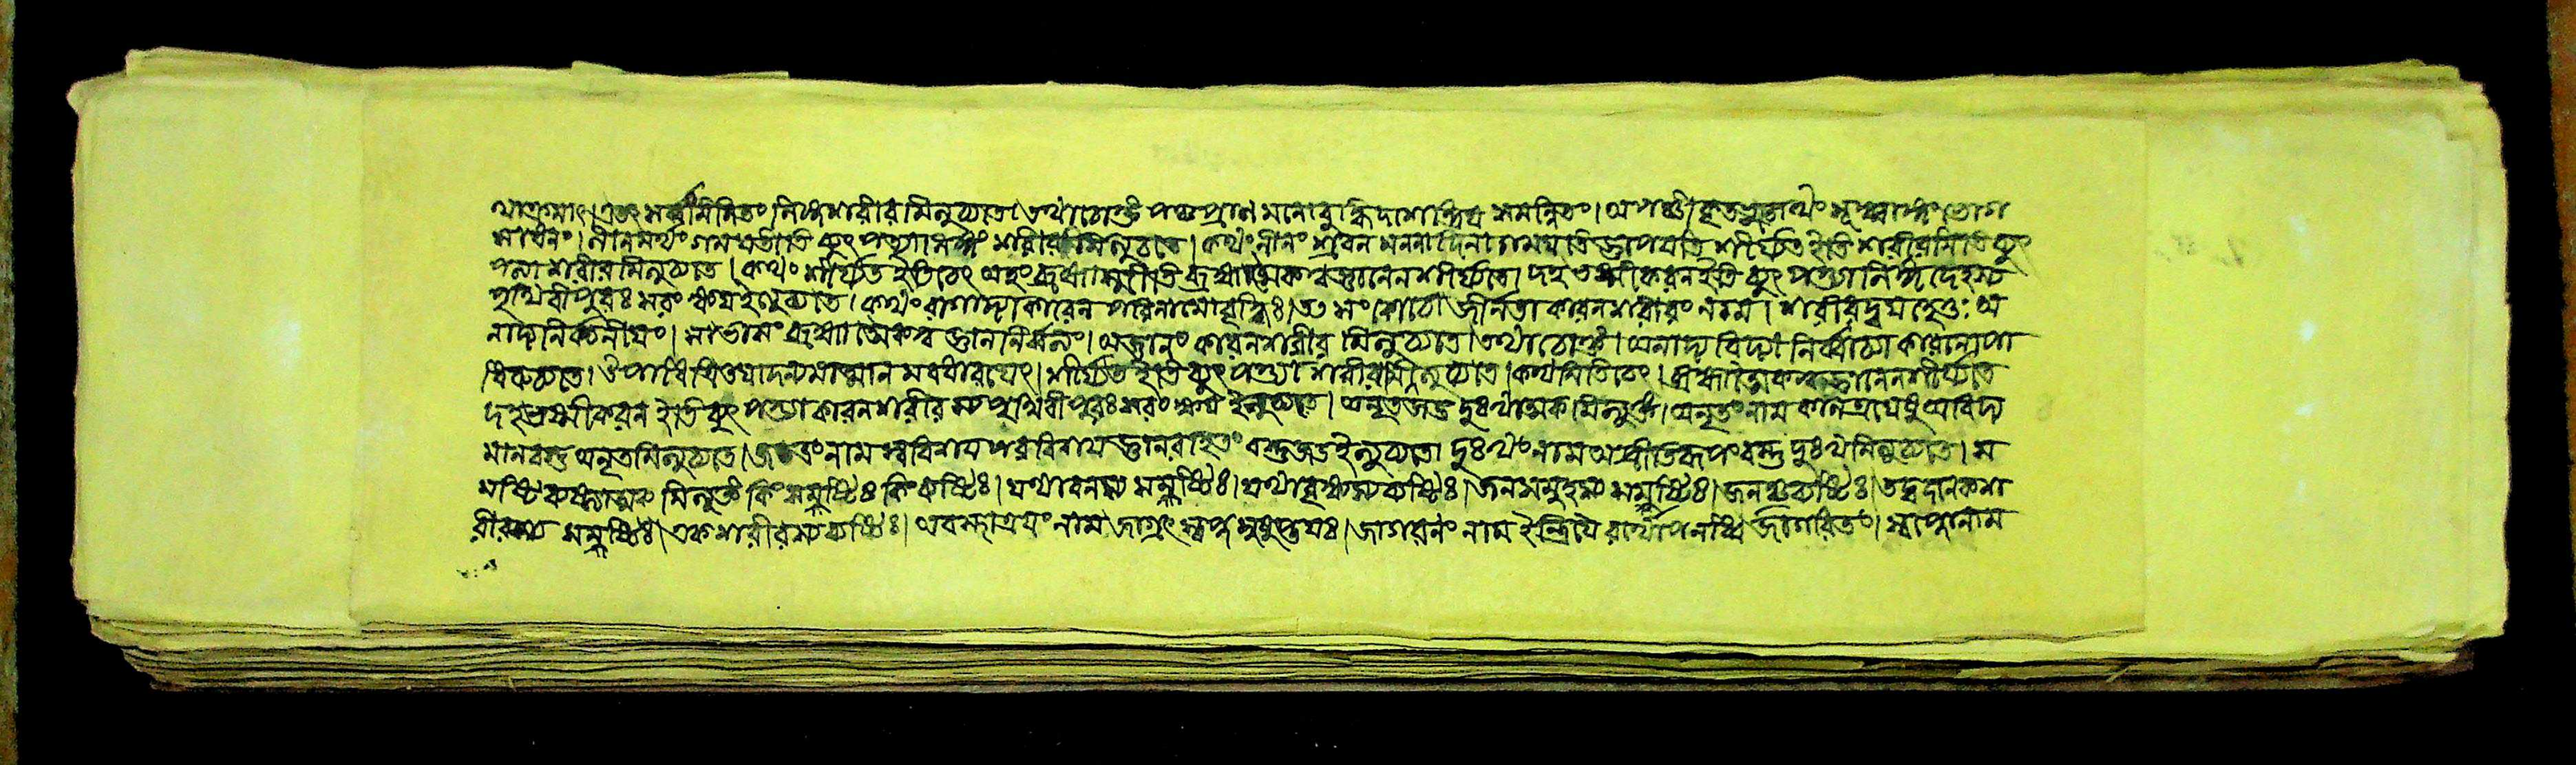 থাক্রমাৎ। এতৎ সর্ব্বং মিলিতং লিঙ্গশরীরমিত্যুচ্যতে। তথাচোক্তং পঞ্চপ্রাণ মনোবুদ্ধি দশেন্দ্রিয় সমন্বিতং। অপঞ্চীকৃতভূতোত্থং সূক্ষ্মাঙ্গং ভোগ
সাধনং। লীনমর্থং গময়তীতি ব্যুৎপত্ত্যা লিঙ্গং শরীরমিত্যুচ্যতে। কথং লীনং শ্রবন মননাদিনা গময়তি জ্ঞাপয়তি শীর্য্যতে ইতি শরীরমিতি ব্যুৎ
পত্যা শরীরমিত্যুচ্যতে। কথং শীর্য্যত ইতি চেৎ অহং ব্রহ্মাস্মীতি ব্রহ্মাত্মৈকত্বজ্ঞানেন শীর্য্যতে। দহ ভস্মীকরন ইতি ব্যুৎপত্ত্যা লিঙ্গদেহস্য
পৃথিবীপুরঃ সরং ক্ষয় ইত্যুচ্যতে। কথং বাগাদ্যাকারেন পরিনামো বৃদ্ধিঃ। তৎ সংকোচো জীর্নতা কারনশরীরং নাম। শরীরদ্বয়হেতুঃ অ
নাদ্যনির্বচনীয়ং। সাভাসং ব্রহ্মাত্মৈকত্ব জ্ঞাননিবর্ত্যং। অজ্ঞানং কারনশরীরমিত্যুচ্যতে। তথাচোক্তং। অনাদ্যবিদ্যা নির্ব্বাচ্যা কারনোপা
ধিরুচ্যতে। উপাধি ত্রিতয়াদন্যমাত্মানমবধারয়েৎ। শীর্য্যত ইতি ব্যুৎপত্ত্যা শরীরমিত্যুচ্যতে। কথমিতি চেৎ। ব্রহ্মাত্মৈকত্বজ্ঞানেন শীর্য্যতে
দহ ভস্মীকরন ইতি ব্যুৎপত্ত্যা কারনশরীরস্য পৃথিবীপুরঃ সরং ক্ষয় ইত্যুচ্যতে। অনৃত জড় দুঃখাত্মকমিত্যুক্তং। অনৃতং নাম কালত্রয়েষু অবিদ্য
মানবস্তু অনৃতমিত্যুচ্যতে। জড়ং নাম স্ববিষয় পরবিষয় জ্ঞানরহিতং বস্তু জড় ইত্যুচ্যতে। দুঃখং নাম অপ্রীতিরূপং বস্তু দুঃখমিত্যুচ্যতে। স
মষ্টি ব্যষ্ট্যাত্মক মিত্যুক্তং কিং সমষ্টিঃ কিং ব্যষ্টিঃ। যথা বনস্য সমষ্টিঃ। যথা বৃক্ষস্য ব্যষ্টিঃ। জলসমূহস্য সমষ্টিঃ। জলস্য ব্যষ্টিঃ। তদ্বদনেকশ
রীরস্য সমষ্টিঃ। একশরীরস্য ব্যষ্টিঃ। অবস্থাত্রয়ং নাম জাগ্রৎ স্বপ্ন সুষুপ্তয়ঃ। জাগরনং নাম ইন্দ্রিয়ৈরর্থোপলব্ধি র্জাগরিতং। স্বপ্নোনাম